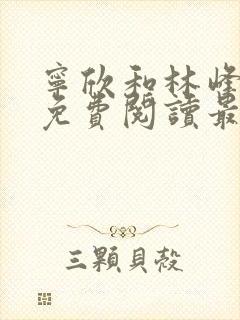 寧欣和林峰
免費閱讀最
三顆貝殼